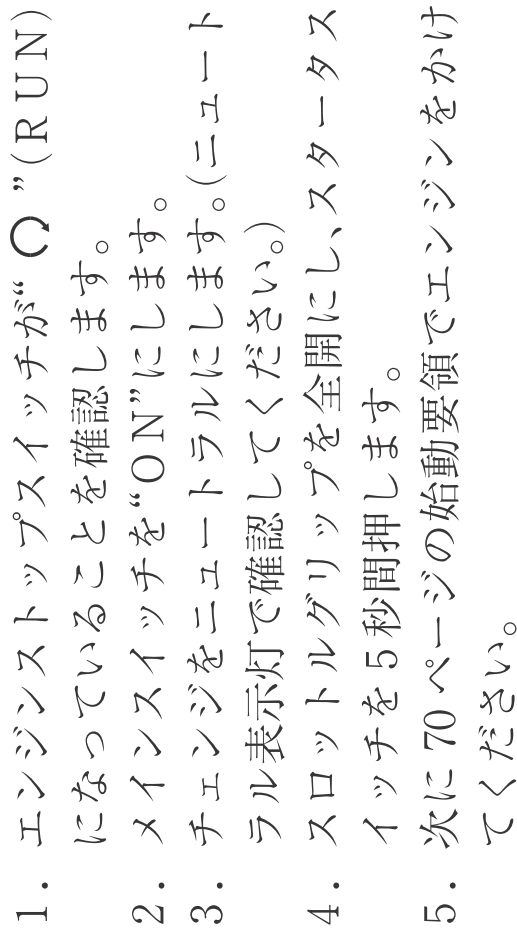 1. エンジンストップスイッチが“ ”(RUN)
になっていることを確認します。
2. メインスイッチを“ON”にします。
3. チェンジをニュートラルにします。(ニュート
ラル表示灯で確認してください。)
4. スロットルグリップを全開にし、スタータス
イッチを5秒間押します。
5. 次に70ページの始動要領でエンジンをかけ
てください。